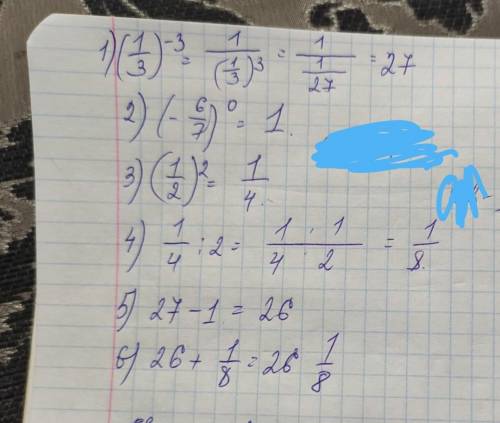 1) (1/3)^-3 = 1/(1/3)^3 = 1/(1/27) = 27
2) (- 6/7)^0 = 1.
3) (1/2)^2 = 1/4.
4) 1/4 : 2 = 1 · 1/4 · 2 = 1/8.
5) 27 - 1 = 26
6) 26 + 1/8 = 26 1/8